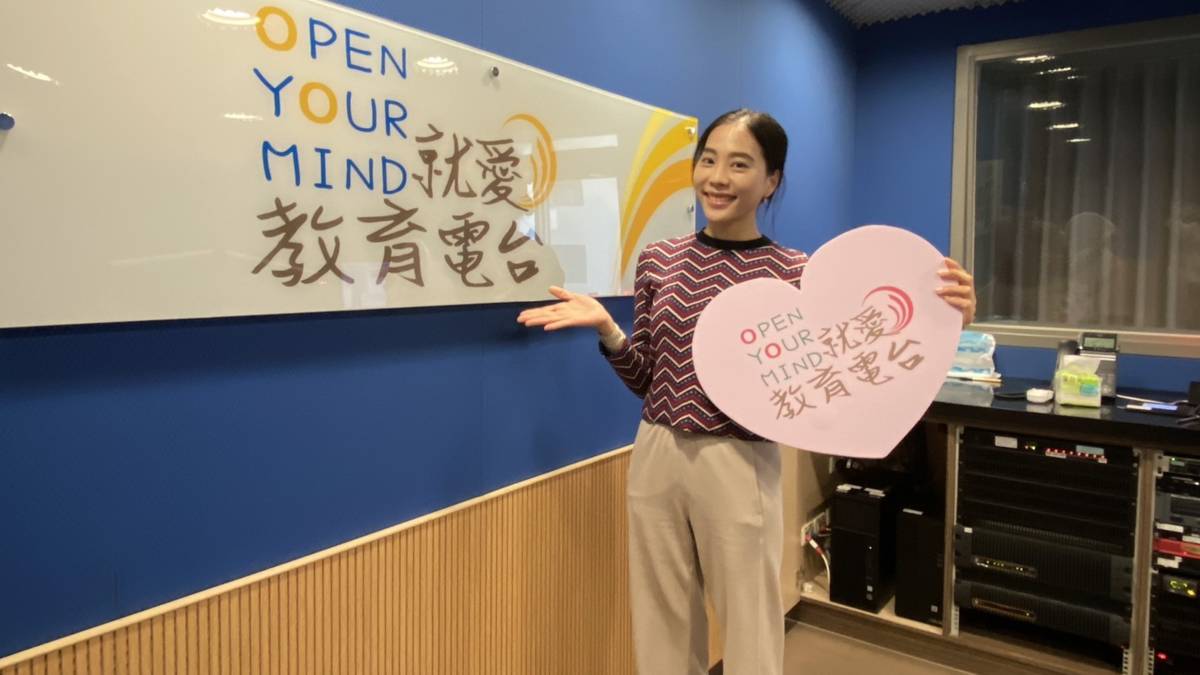 OPEN
YOUR
MIND就愛
教育電台
OPEN
YOUR
MIND就愛
教育電台